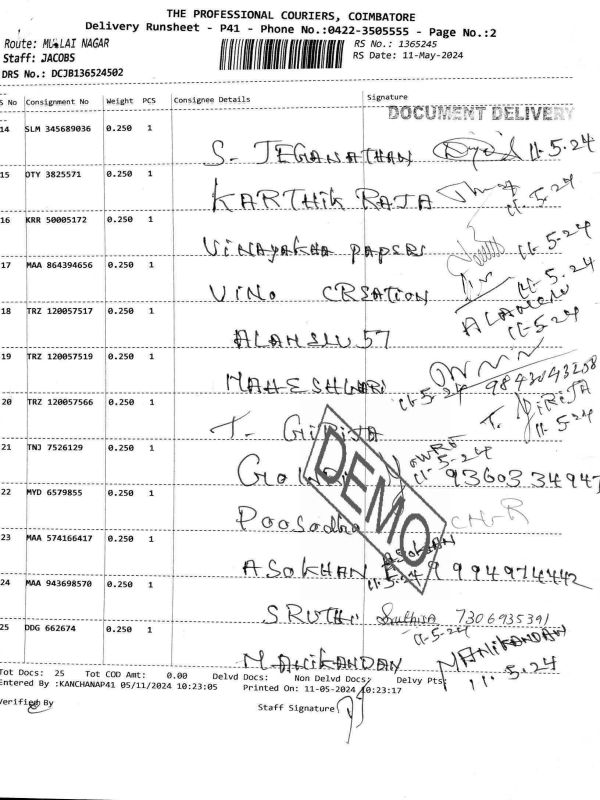 THE PROFESSIONAL COURIERS, COIMBATORE
Delivery Runsheet - P41 - Phone No.:0422-3505555 - Page No.:2
Route: MULLAI NAGAR RS No.: 1365245
Staff: JACOBS RS Date: 11-May-2024
DRS No.: DCJB136524502
S No Consignment No Weight PCS Consignee Details Signature
DOCUMENT DELIVERY
14 SLM 345689036 0.250 1 S. JEGANATHAN 11.5.24
15 OTY 3825571 0.250 1 KARTHIK RAJA 11.5.24
16 KRR 50005172 0.250 1 VINAYAKHA PAPERS 11.5.24
17 MAA 864394656 0.250 1 VINO CRSATION 11.5.24
18 TRZ 120057517 0.250 1 57 11.5.24
19 TRZ 120057519 0.250 1 MAHESHWARI 11.5.24
20 TRZ 120057566 0.250 1 T. GIRIJA T. GIRIJA 11.5.24
21 TNJ 7526129 0.250 1 11.5.24
22 MYD 6579855 0.250 1
23 MAA 574166417 0.250 1 ASOKHAN ASOKHAN 11.5.24 9994974442
24 MAA 943698570 0.250 1 SRUTHI 7306935391 11.5.24
25 DDG 662674 0.250 1 MANIKANDAN MANIKANDAN 11.5.24
DEMO
Tot Docs: 25 Tot COD Amt: 0.00 Delvd Docs: Non Delvd Docs: Delvy Pts:
Entered By :KANCHANAP41 05/11/2024 10:23:05 Printed On: 11-05-2024 10:23:17
Verified By Staff Signature